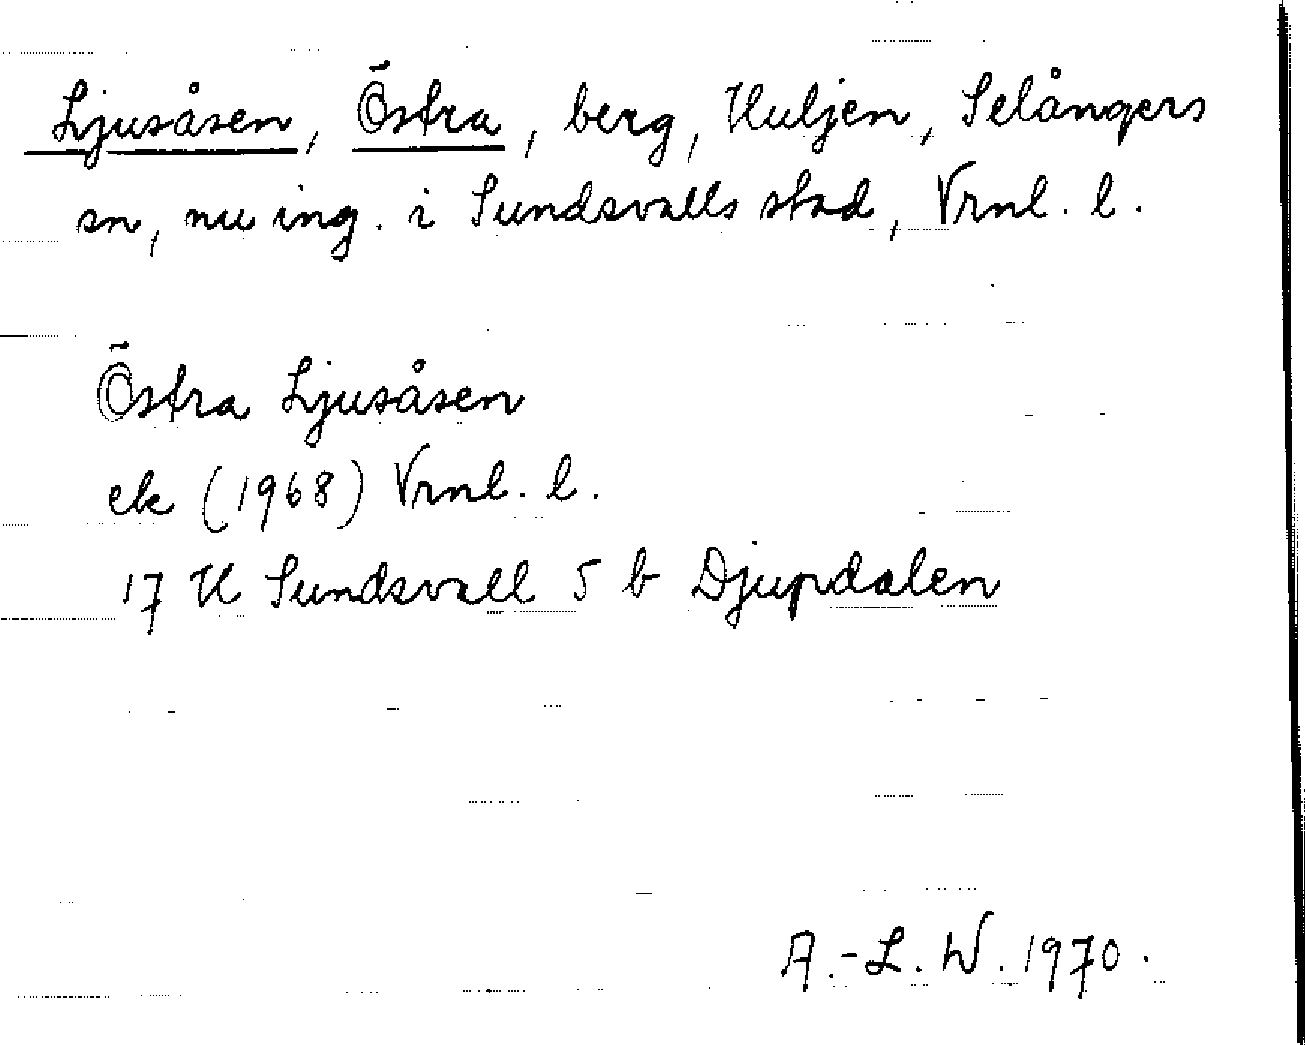 Ljusåsen, Östra, berg, Huljen, Selångers
sn, nu ing. i Sundsvalls stad, Vrnl. l.
Östra Ljusåsen
ek (1968) Vrnl. l.
17 H Sundsvall 5 b Djupdalen
A.-L. W. 1970.